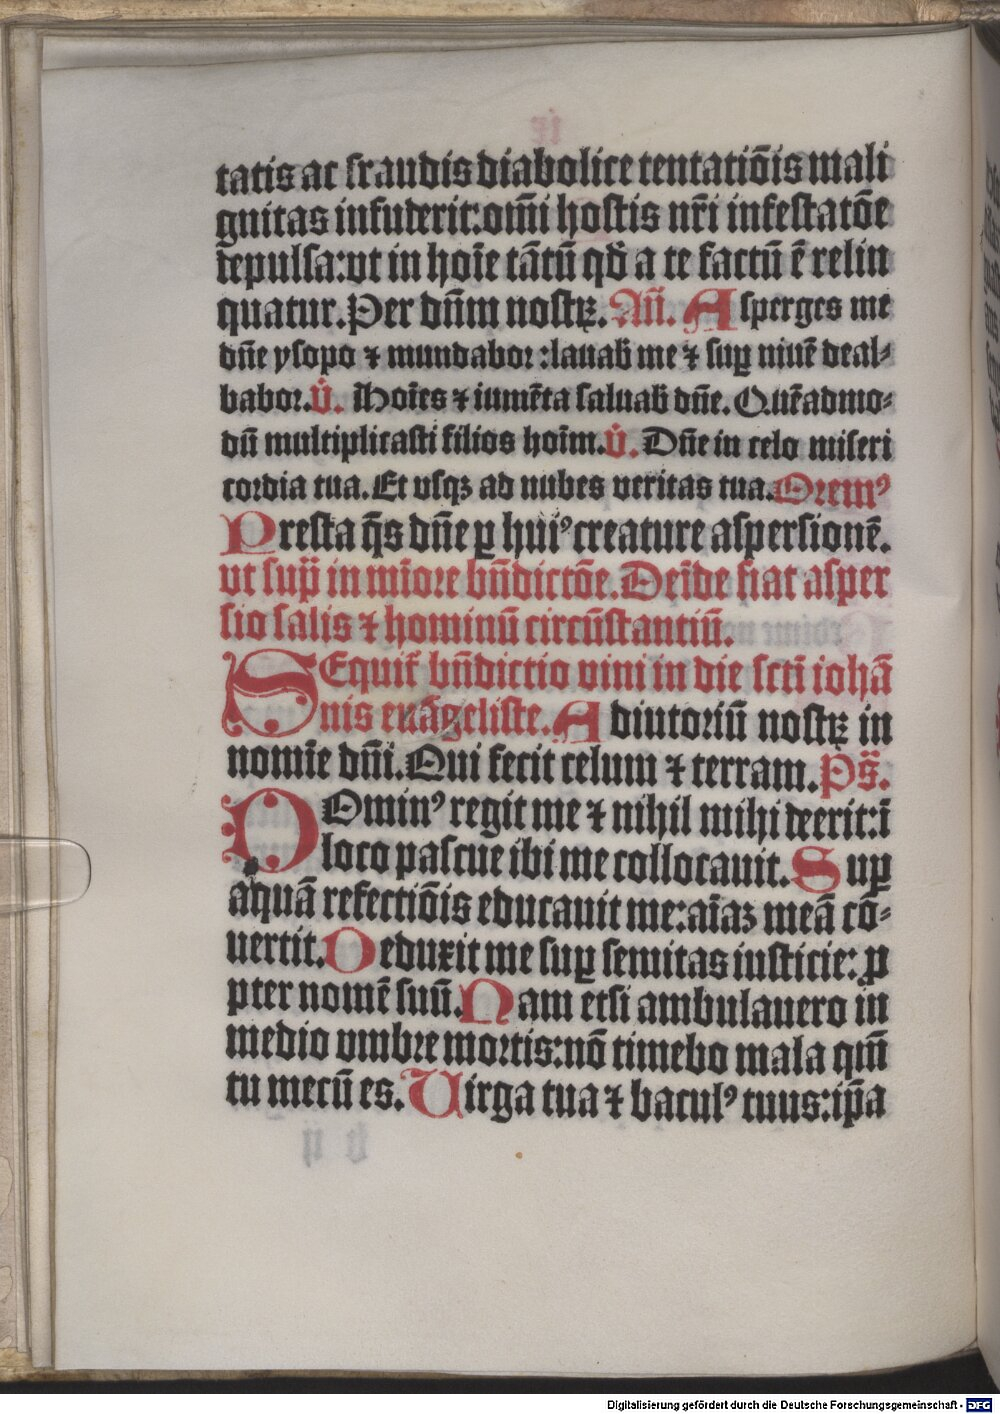 tatis ac fraudis diabolice tentatiōis mali
gnitas infuderit: om̄i hostis nr̄i infestatōe
depulsa: vt in hoīe tātū qď a te factū ē relin
quatur. Per dn̄m nostꝝ. An̄. Asperges me
dn̄e ysopo ⁊ mundabor: lauab me ⁊ suꝑ niuē deal-
babor. V̊. Hoīes ⁊ iumēta saluab dn̄e. Quēadmo-
dū multiplicasti filios hoīm. V̊. Dn̄e in celo miseri
cordia tua. Et vsqꝫ ad nubes veritas tua. Oremꝰ
Presta q̄s dn̄e ꝑ huiꝰ creature aspersionē.
vt sup̄ in mīore bn̄dictōe. Deīde fiat asper
sio salis ⁊ hominū circūstantiū.
SEquit̄ bn̄dictio vini in die scti iohā
nis euāgeliste. Adiutoriū nostꝝ in
nomīe dn̄i. Qui fecit celum ⁊ terram. Ps̄.
DOminꝰ regit me ⁊ nihil mihi deerit: ī
loco pascue ibi me collocauit. Suꝑ
aquā refectiōis educauit me: aīaꝫ meā cō-
uertit. Deduxit me suꝑ semitas iusticie: ꝓ
pter nomē suū. Nam etsi ambulauero in
medio vmbre mortis: nō timebo mala qm̄
tu mecū es. Virga tua ⁊ baculꝰ tuus: ip̄a
Digitalisierung gefördert durch die Deutsche Forschungsgemeinschaft - DFG